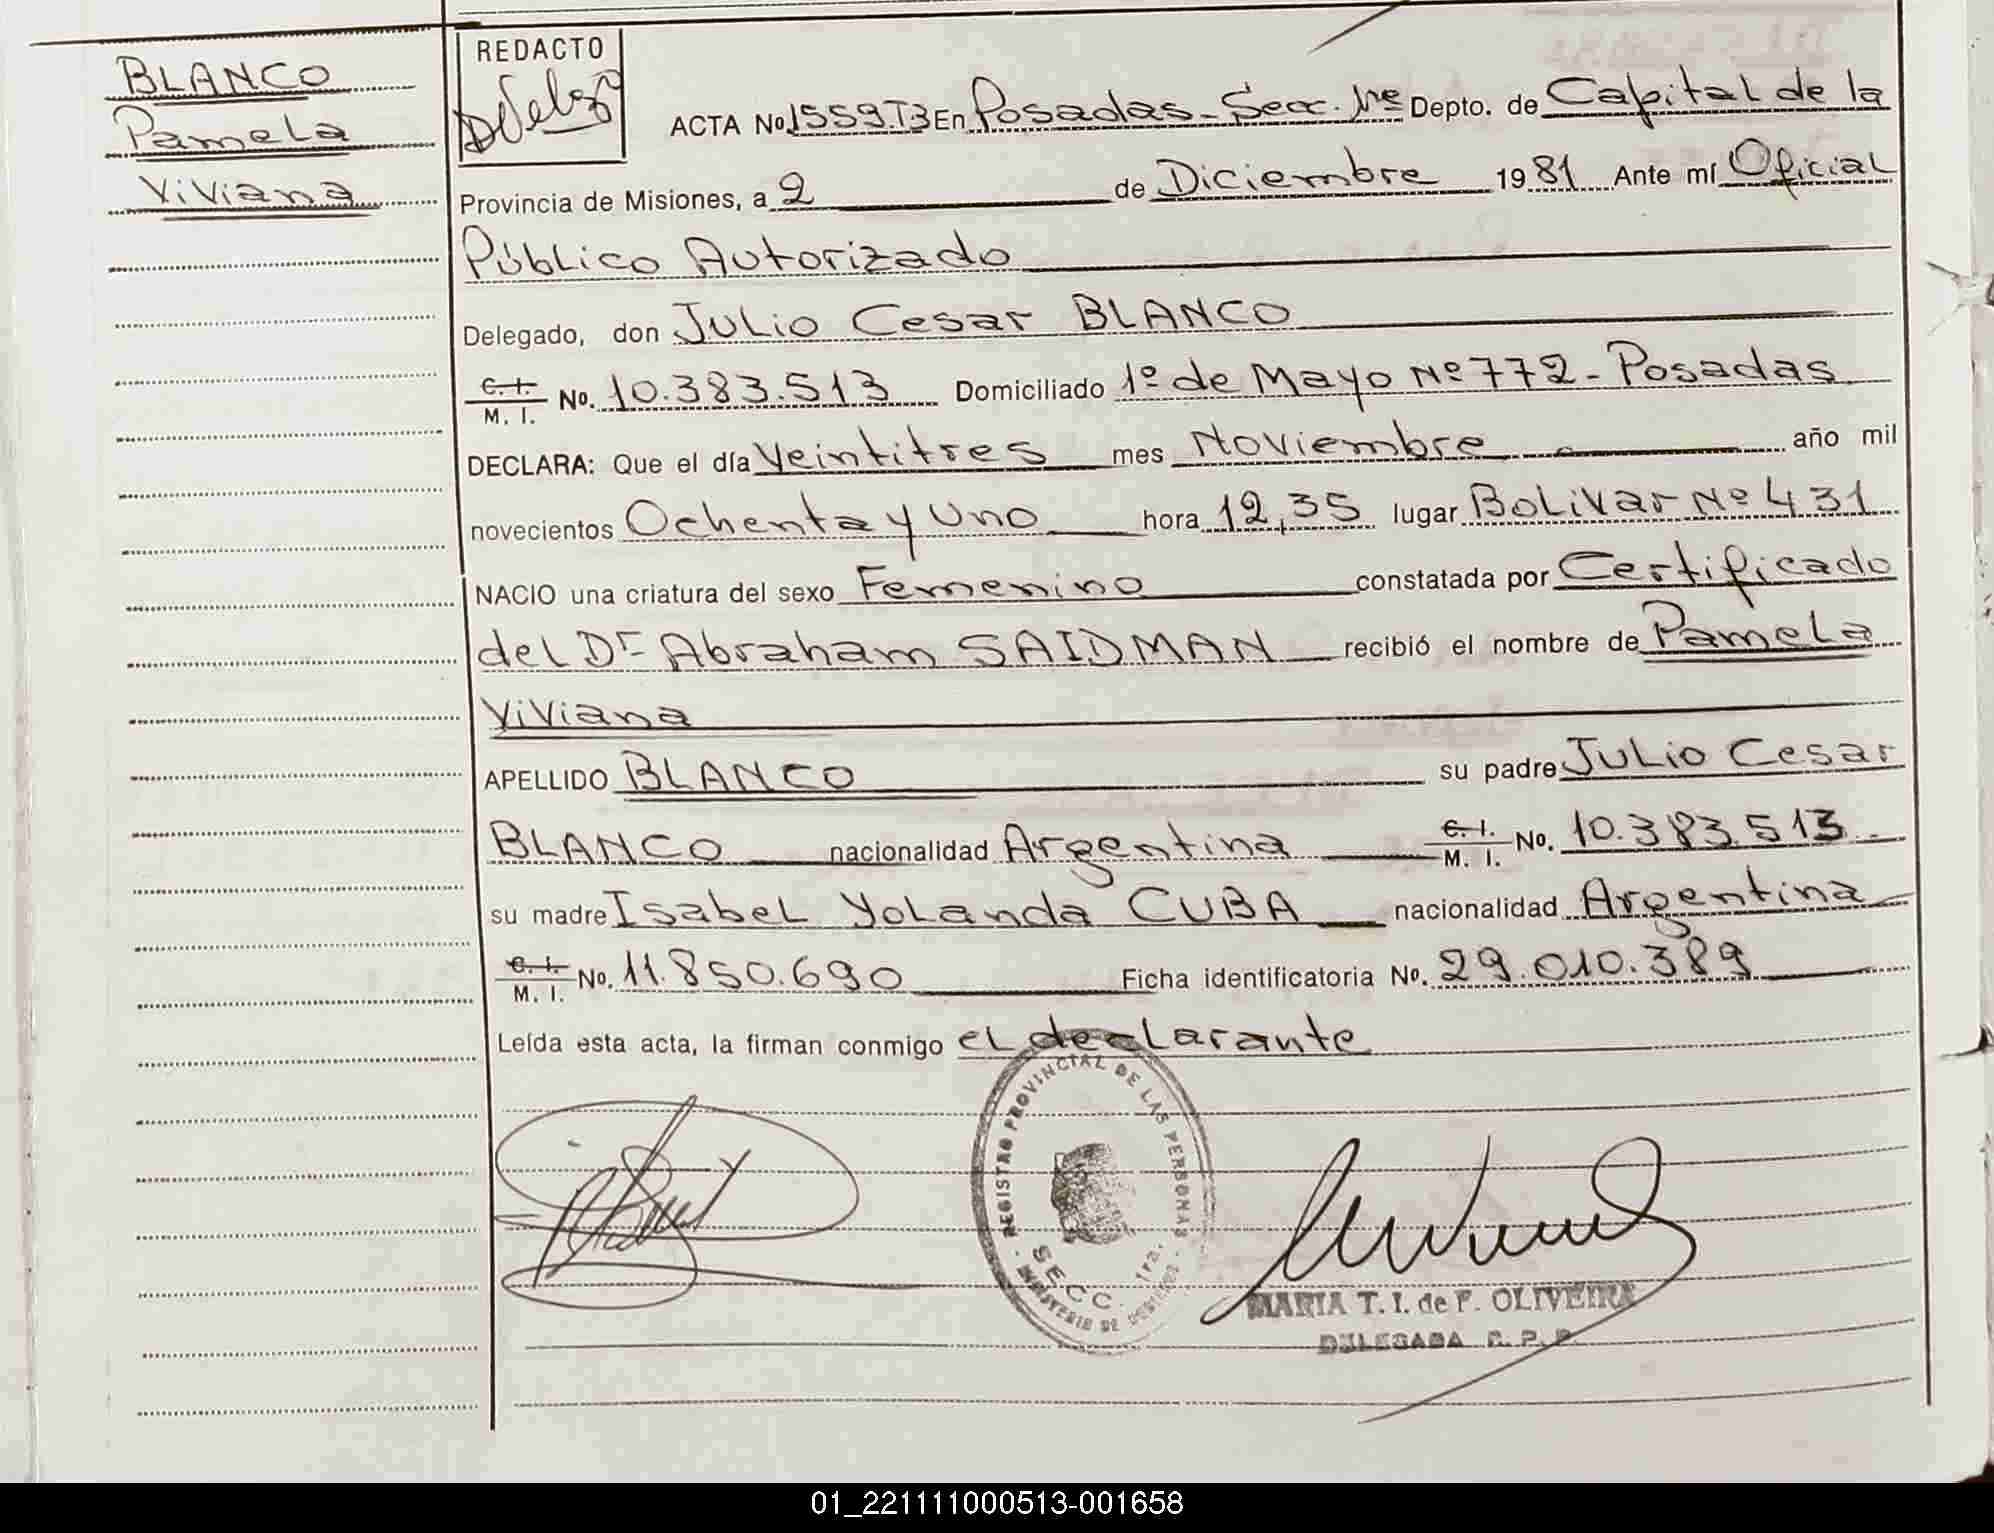 BLANCO
Pamela
Viviana
REDACTO
ACTA No. 1559.T3 En Posadas - Secc. 1re Depto. de Capital de la
Provincia de Misiones, a 2 de Diciembre 1981 Ante mí Oficial
Público Autorizado
Delegado, don Julio Cesar BLANCO
C. I. M. I. No. 10.383.513 Domiciliado 1º de Mayo Nº 772 - Posadas
DECLARA: Que el día Veintitres mes Noviembre año mil
novecientos Ochenta y Uno hora 12,35 lugar Bolivar Nº 431
NACIO una criatura del sexo Femenino constatada por Certificado
del Dr Abraham SAIDMAN recibió el nombre de Pamela
Viviana
APELLIDO BLANCO su padre Julio Cesar
BLANCO nacionalidad Argentina C. I. M. I. No. 10.383.513
su madre Isabel Yolanda CUBA nacionalidad Argentina
C. I. M. I. No. 11.850.690 Ficha identificatoria No. 29.010.389
Leída esta acta, la firman conmigo el declarante
REGISTRO PROVINCIAL DE LAS PERSONAS
SECC. 1ra.
MINISTERIO DE
MARIA T. I. de F. OLIVEIRA
DELEGADA R. P. P.
01_221111000513-001658